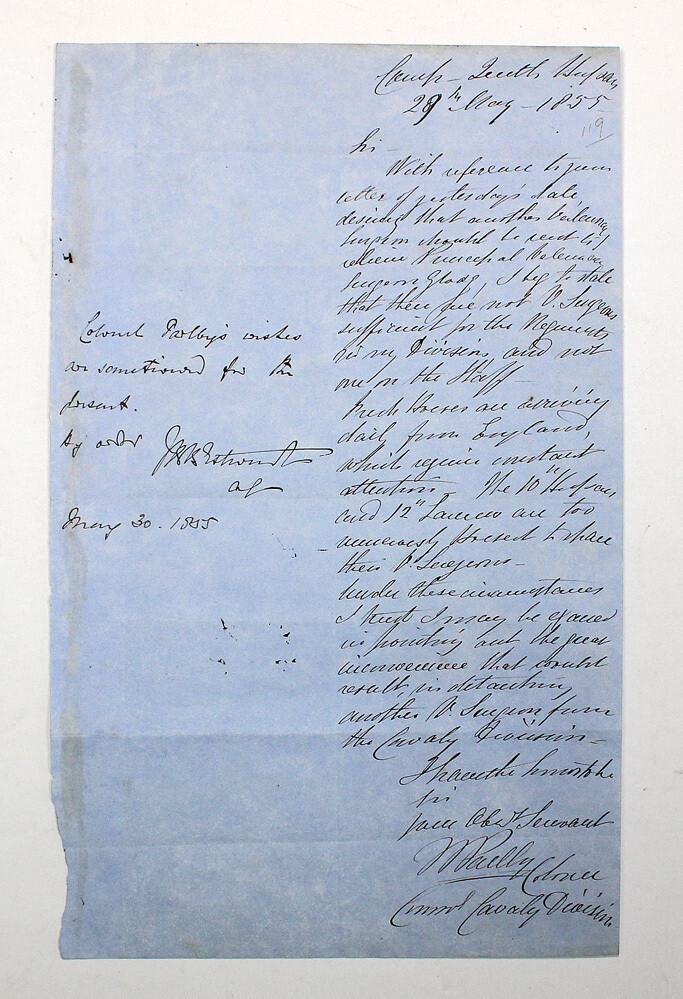 Camp - Tenth Hussars
29th May - 1855
119
Sir -
With reference to your
letter of yesterday's date,
desiring that another Veterinary
Surgeon should be sent to
relieve Principal Veterinary
Surgeon Gloag, I beg to state
that there are not V. Surgeons
sufficient for the Regiments
in my Division, and not
one on the Staff -
Fresh Horses are arriving
daily from England,
which require constant
attention - The 10th Hussars
and 12th Lancers are too
numerously Horsed to share
their V. Surgeons -
Under these circumstances
I trust I may be excused
in pointing out the great
inconvenience that would
result, in detaching
another V. Surgeon from
the Cavalry Division -
I have the honor to be
Sir
Your Obedt Servant
W Parlby
Colonel
Commd Cavalry Division
Colonel Parlby's wishes
are sanctioned for the
present.
By order
AG
May 30. 1855